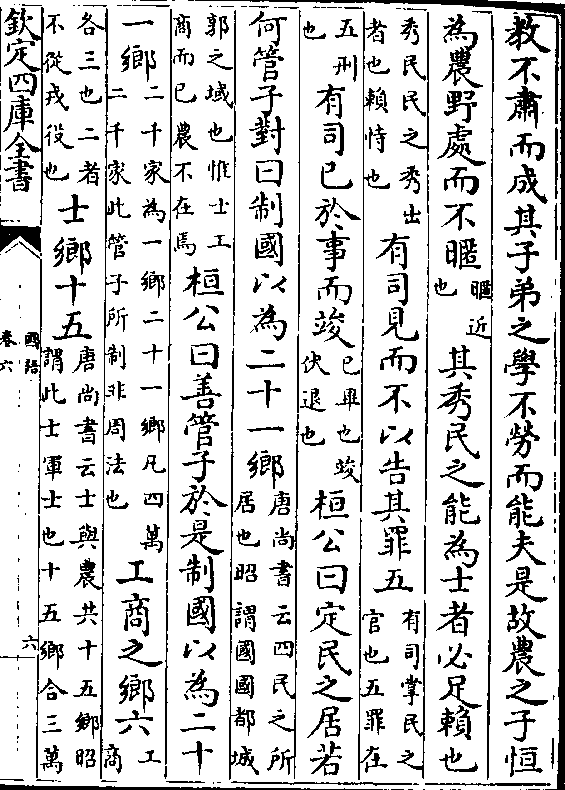 教不肅而成其子弟之學不勞而能夫是故農之子恒
為農野處而不暱暱近也其秀民之能為士者必足賴也
秀民民之秀出者也賴恃也有司見而不以告其罪五有司掌民之官也五罪在
五刑也有司已於事而竣已畢也竣伏退也桓公曰定民之居若
何管子對曰制國以為二十一鄉唐尚書云四民之所居也昭謂國國都城
郭之域也惟士工商而已農不在焉桓公曰善管子於是制國以為二十
一鄉二千家為一鄉二十一鄉凡四萬二千家此管子所制非周法也工商之鄉六工商
各三也二者不從戎役也士鄉十五唐尚書云士與農共十五鄉昭謂此士軍士也十五鄉合三萬
欽定四庫全書
國語
卷六
六